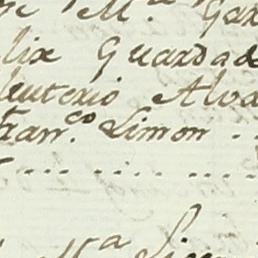 M.ª Gar
lix Guardad
leuterio Alva
Fran.co Limon ..
.... ... ....
M.ª